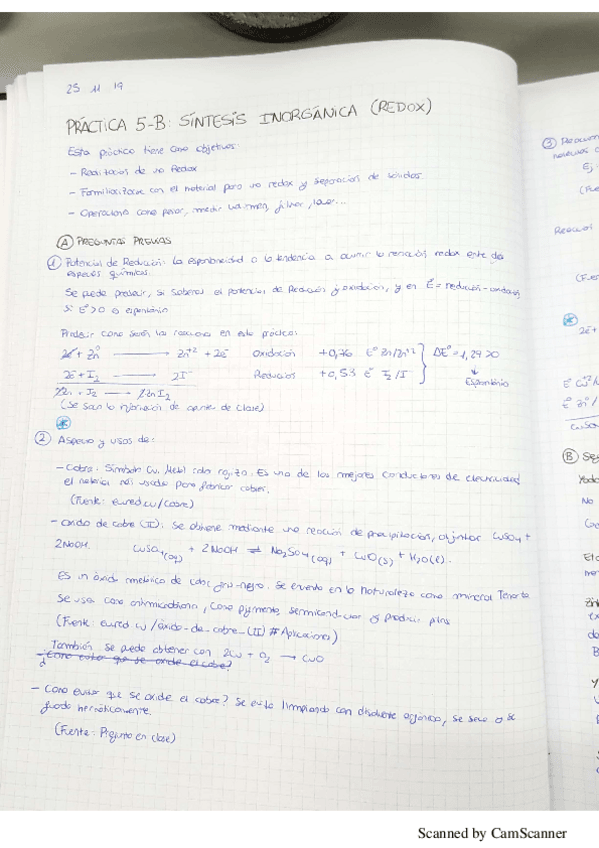 25 11 19
PRÁCTICA 5-B: SÍNTESIS INORGÁNICA (REDOX)
Esta práctica tiene como objetivos:
- Realización de una Redox
- Familiarizarse con el material para una redox y separación de sólidos
- Operaciones como pesar, medir volumen, filtrar, lavar...
A PREGUNTAS PREVIAS
1 Potencial de Reducción: La espontaneidad o la tendencia a ocurrir la reacción redox entre dos
especies químicas.
Se puede predecir, si sabemos el potencial de Reducción y oxidación, y en E° = reducción - oxidación
si E° > 0 es espontánea
Predecir como serán las reacciones en esta práctica
Zn⁰ → Zn⁺² + 2e⁻ Oxidación +0,76 E° Zn/Zn⁺² ΔE° = 1,29 > 0
2e⁻ + I₂ → 2I⁻ Reducción +0,53 E° I₂/I⁻ Espontánea
Zn + I₂ → ZnI₂
(Se sacó la información de apuntes de clase)
2 Aspecto y usos de:
- Cobre: Símbolo Cu. Metal color rojizo. Es uno de los mejores conductores de electricidad
el material más usado para fabricar cables.
(Fuente: eured.cu/Cobre)
- Óxido de cobre (II): Se obtiene mediante una reacción de precipitación, al juntar CuSO₄ +
2NaOH. CuSO₄(aq) + 2NaOH ⇌ Na₂SO₄(aq) + CuO(s) + H₂O(l).
Es un óxido metálico de color gris-negro. Se encuentra en la Naturaleza como mineral Tenorita
Se usa como antimicrobiano, como pigmento, semiconductor
(Fuente: eured.cu/óxido-de-cobre-(II)#Aplicaciones)
También se puede obtener con 2Cu + O₂ → CuO
¿Cómo evitar que se oxide el cobre?
- Como evitar que se oxide el cobre? Se evita limpiando con disolvente orgánico, se seca o se
guarda herméticamente.
(Fuente: Pregunta en clase)
3
2e⁻ +
B
Scanned by CamScanner